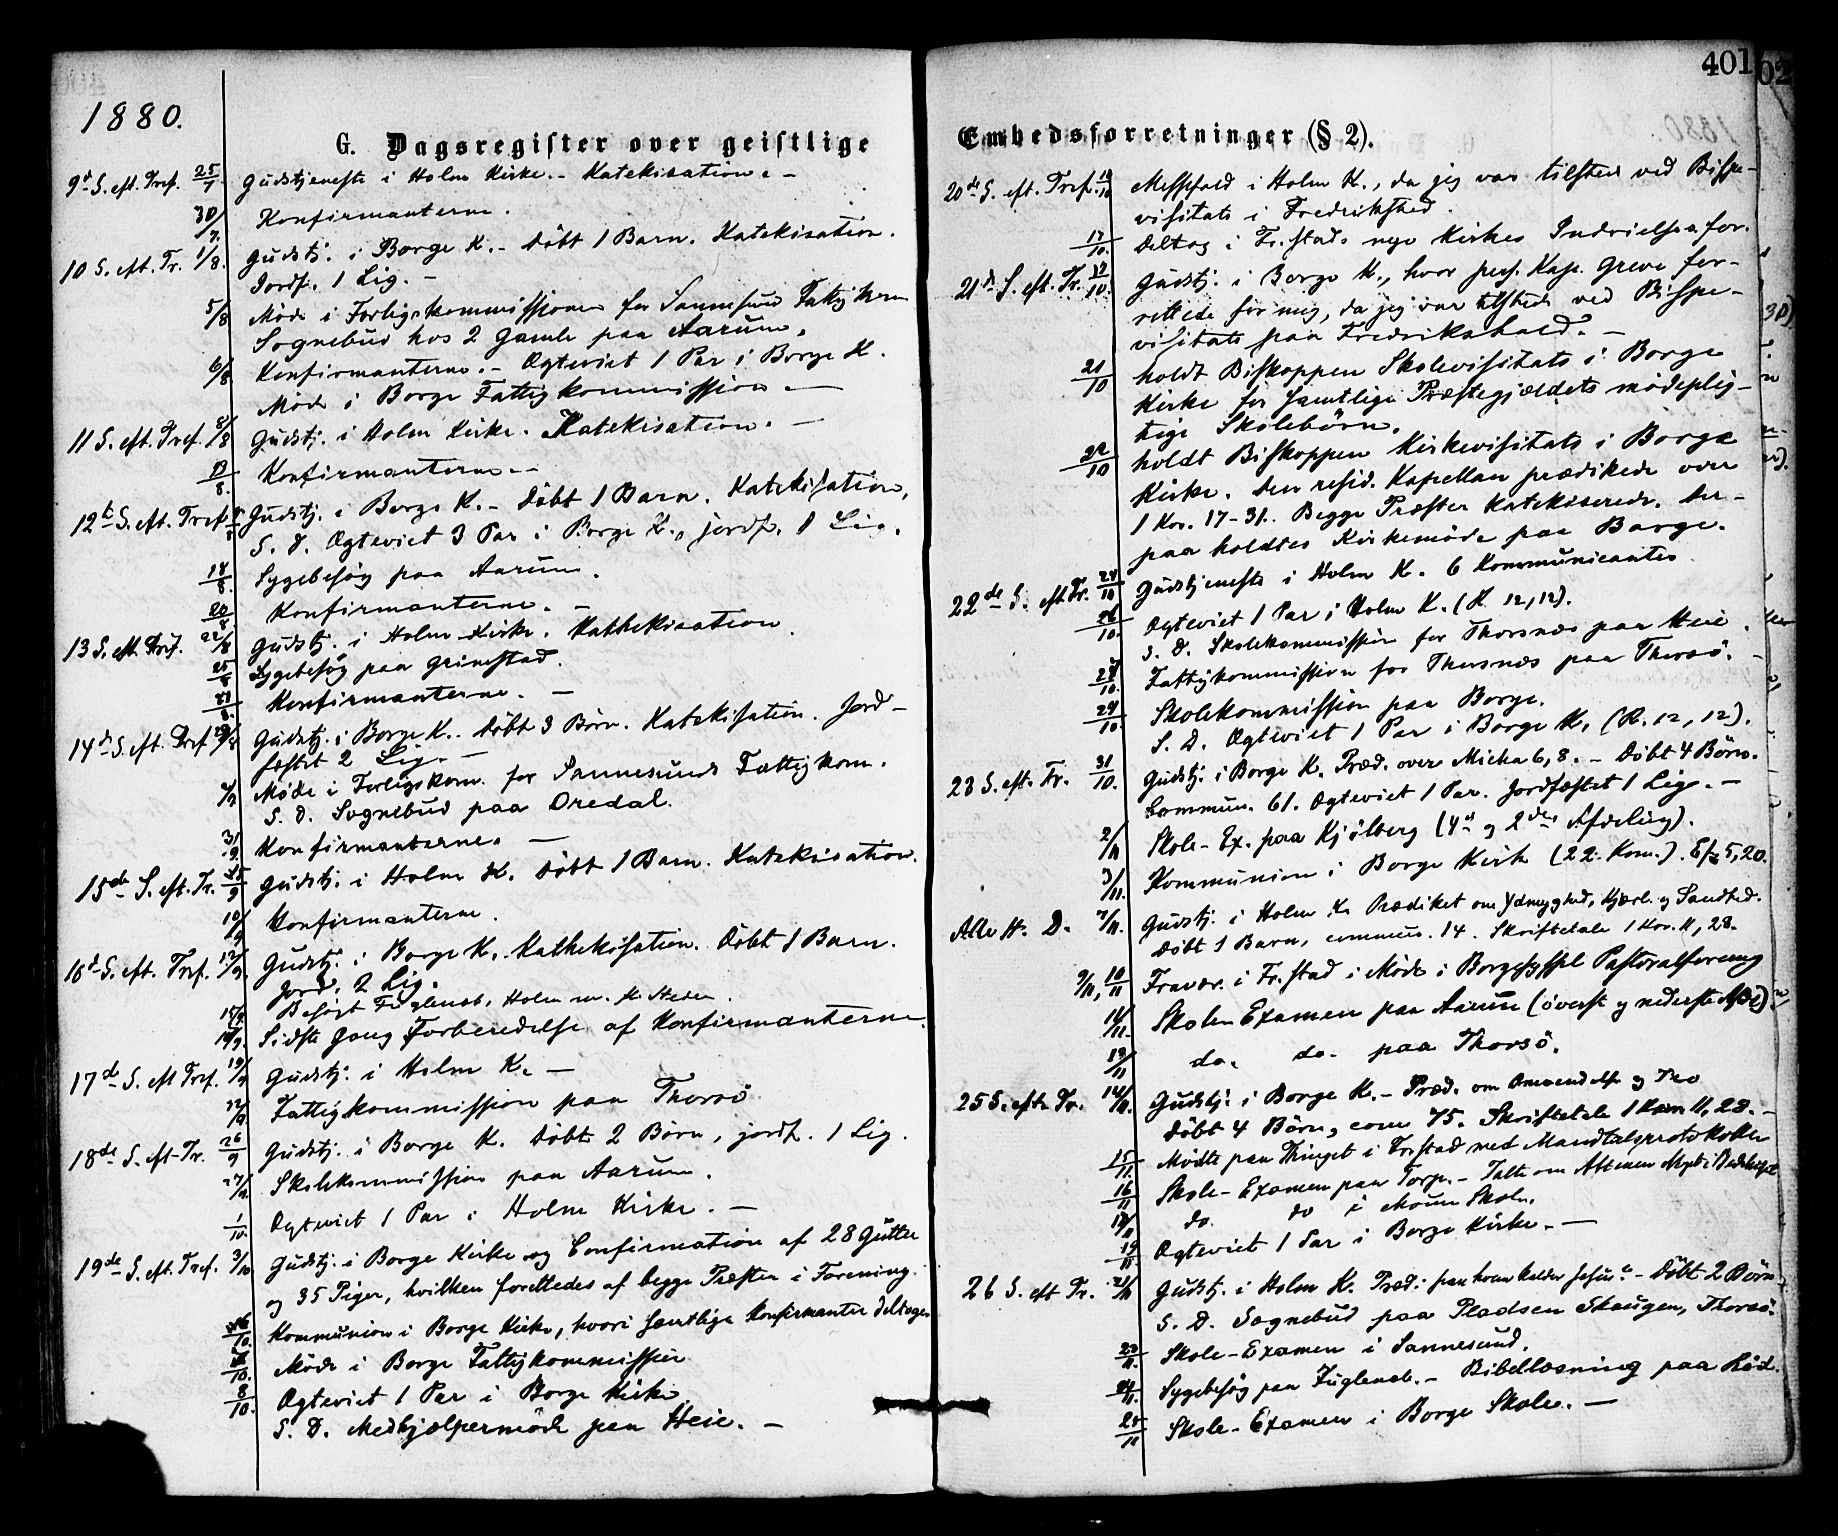 1880.
G. Dagsregister over geistlige
9d S. eft. Tref. 25/7 Gudstjeneste i Holm Kirke. - Katekisation. -
30/7. Konfirmanterne.
10 S. eft. Tr. 1/8. Gudstj. i Borge K. - Döbt 1 Barn. Katekisation.
Jordf. 1 Lig. -
5/8 Möde i Forligskommissionen for Sannesund Fattigkom
Sognebud hos 2 Gamle paa Aarum.
6/8 Konfirmanterne. - Ægteviet 1 Par i Borge K.
Möde i Borge Fattigkommission. -
11 S. eft. Tref. 8/8 Gudstj. i Holm Kirke. Katekisation. -
13/8. Konfirmanterne. -
12t S. eft. Tref. Gudstj. i Borge K. - Döbt 1 Barn. Katekisation.
S. D. Ægteviet 3 Par i Borge K., jordf. 1 Lig.
18/8 Sygebesög paa Aarum.
20/8 Konfirmanterne. -
13 S. eft. Tref. 22/8 Gudstj. i Holm Kirke. Kathekisation.
25/8 Sygebesög paa Grimstad.
Konfirmanterne. -
14d S. eft. Tref 29/8 Gudstj. i Borge K. Döbt 3 Börn. Katekisation. Jord-
fæstet 2 Lig. -
2/9 Möde i Forligskom. for Sannesunds Fattigkom.
S. D. Sognebud paa Oredal.
3/9. Konfirmanterne. -
15de S. eft. Tr. 5/9 Gudstj. i Holm K. Döbt 1 Barn. Katekisation.
10/9 Konfirmanterne.
16d S. eft. Tref. 12/9. Gudstj. i Borge K. Kathekisation. Döbt 1 Barn.
Jord. 2 Lig.
15/9. Besögt Fuglevik, Holm
Sidste Gang Forberedelse af Konfirmanterne.
17de S. eft Tref. 19/9 Gudstj. i Holm K. -
22/9 Fattigkommission paa Thorsö
18de S. eft Tr. 26/9 Gudstj. i Borge K. Döbt 2 Börn, jordf. 1 Lig.
27/9. Skolekommission paa Aarum.
1/10. Ægteviet 1 Par i Holm Kirke. -
19de S. eft. Tref. 3/10 Gudstj. i Borge Kirke og Confirmation af 28 Gutter
og 35 Piger, hvilken forrettedes af begge Præster i Forening.
Kommunion i Borge Kirke, hvori samtlige Konfirmanter deltoge
Möde i Borge Fattigkommission
8/10. Ægteviet 1 Par i Borge Kirke
S. D. Medhjælpermöde paa Heie. -
401
Embedsforretninger (§ 2).
20de S. eft. Tref. 10/10 Messefald i Holm K., da jeg var tilstede ved Bispe-
visitats i Fredrikstad.
Deltog i Fr.stads nye Kirkes Indvielse
21d S. eft. Tr. 17/10. Gudstj. i Borge K., hvor pers. Kap. Greve for-
rettede for mig, da jeg var tilstede ved Bispe-
visitats paa Fredrikshald. -
21/10 holdt Biskoppen Skolevisitats i Borge
Kirke for samtlige Præstegjældets mödeplig-
tige Skolebörn.
22/10 holdt Biskoppen Kirkevisitats i Borge
Kirke. Den resid. Kapellan prædikede over
1 Kor. 17-31. Begge Præster katekiserede. Der-
paa holdtes Kirkemöde paa Borge.
22de S. eft Tr. 24/10 Gudstjeneste i Holm K. 6 Kommunicanter
26/10. Ægteviet 1 Par i Holm K. (R. 12, 12).
S. D. Skolekommission for Thorsnæs paa Heie.
Fattigkommission for Thorsnæs paa Thorsö. -
29/10 Skolekommission paa Borge.
S. D. Ægteviet 1 Par i Borge K. (R. 12, 12).
23 S. eft. Tr. 31/10. Gudstj. i Borge K. Præd. over Micha 6, 8. - Döbt 4 Börn.
Commun. 61. Ægteviet 1 Par. Jordfæstet 1 Lig. -
2/11 Skole-Ex. paa Kjölberg (4d og 2den Afdeling).
3/11. Kommunion i Borge Kirke (22 Kom.). Ef. 5, 20.
Alle H. D. 7/11. Gudstj. i Holm K. Prædiket om Ydmyghed, Kjærl. og Sandhed.
Döbt 1 Barn, commun. 14. Skriftetale 1 Kor. 11, 28.
9/11, 10/11 Fravær. i Fr.stad i Möde i Borgesyssel Pastoralforening
Skole-Examen paa Aarum (överste og nederste Afd.)
do. do. paa Thorsö.
25 S. eft. Tr. 14/11. Gudstj. i Borge K. - Præd. om Omvendelse og Tro
Döbt 4 Börn, com 75. Skriftetale 1 Kor 11, 28. -
15/11. Mödte paa Thinget i Fr.stad med Mandtalsprotokollen
16/11 Skole-Examen paa Torp. - Talte om
do. do i Moum Skole.
19/11 Ægteviet 1 Par i Borge Kirke. -
26 S. eft Tr. 21/11 Gudstj. i Holm K. Præd: paa hvem kalder Jesus - Döbt 2 Börn.
S. D. Sognebud paa Pladsen Skaugen, Thorsö.
23/11. Skole-Examen i Sannesund.
24/11. Sygebesög paa Fuglevik. - Bibellæsning paa Röd.
Skole-Examen i Borge Skole. -